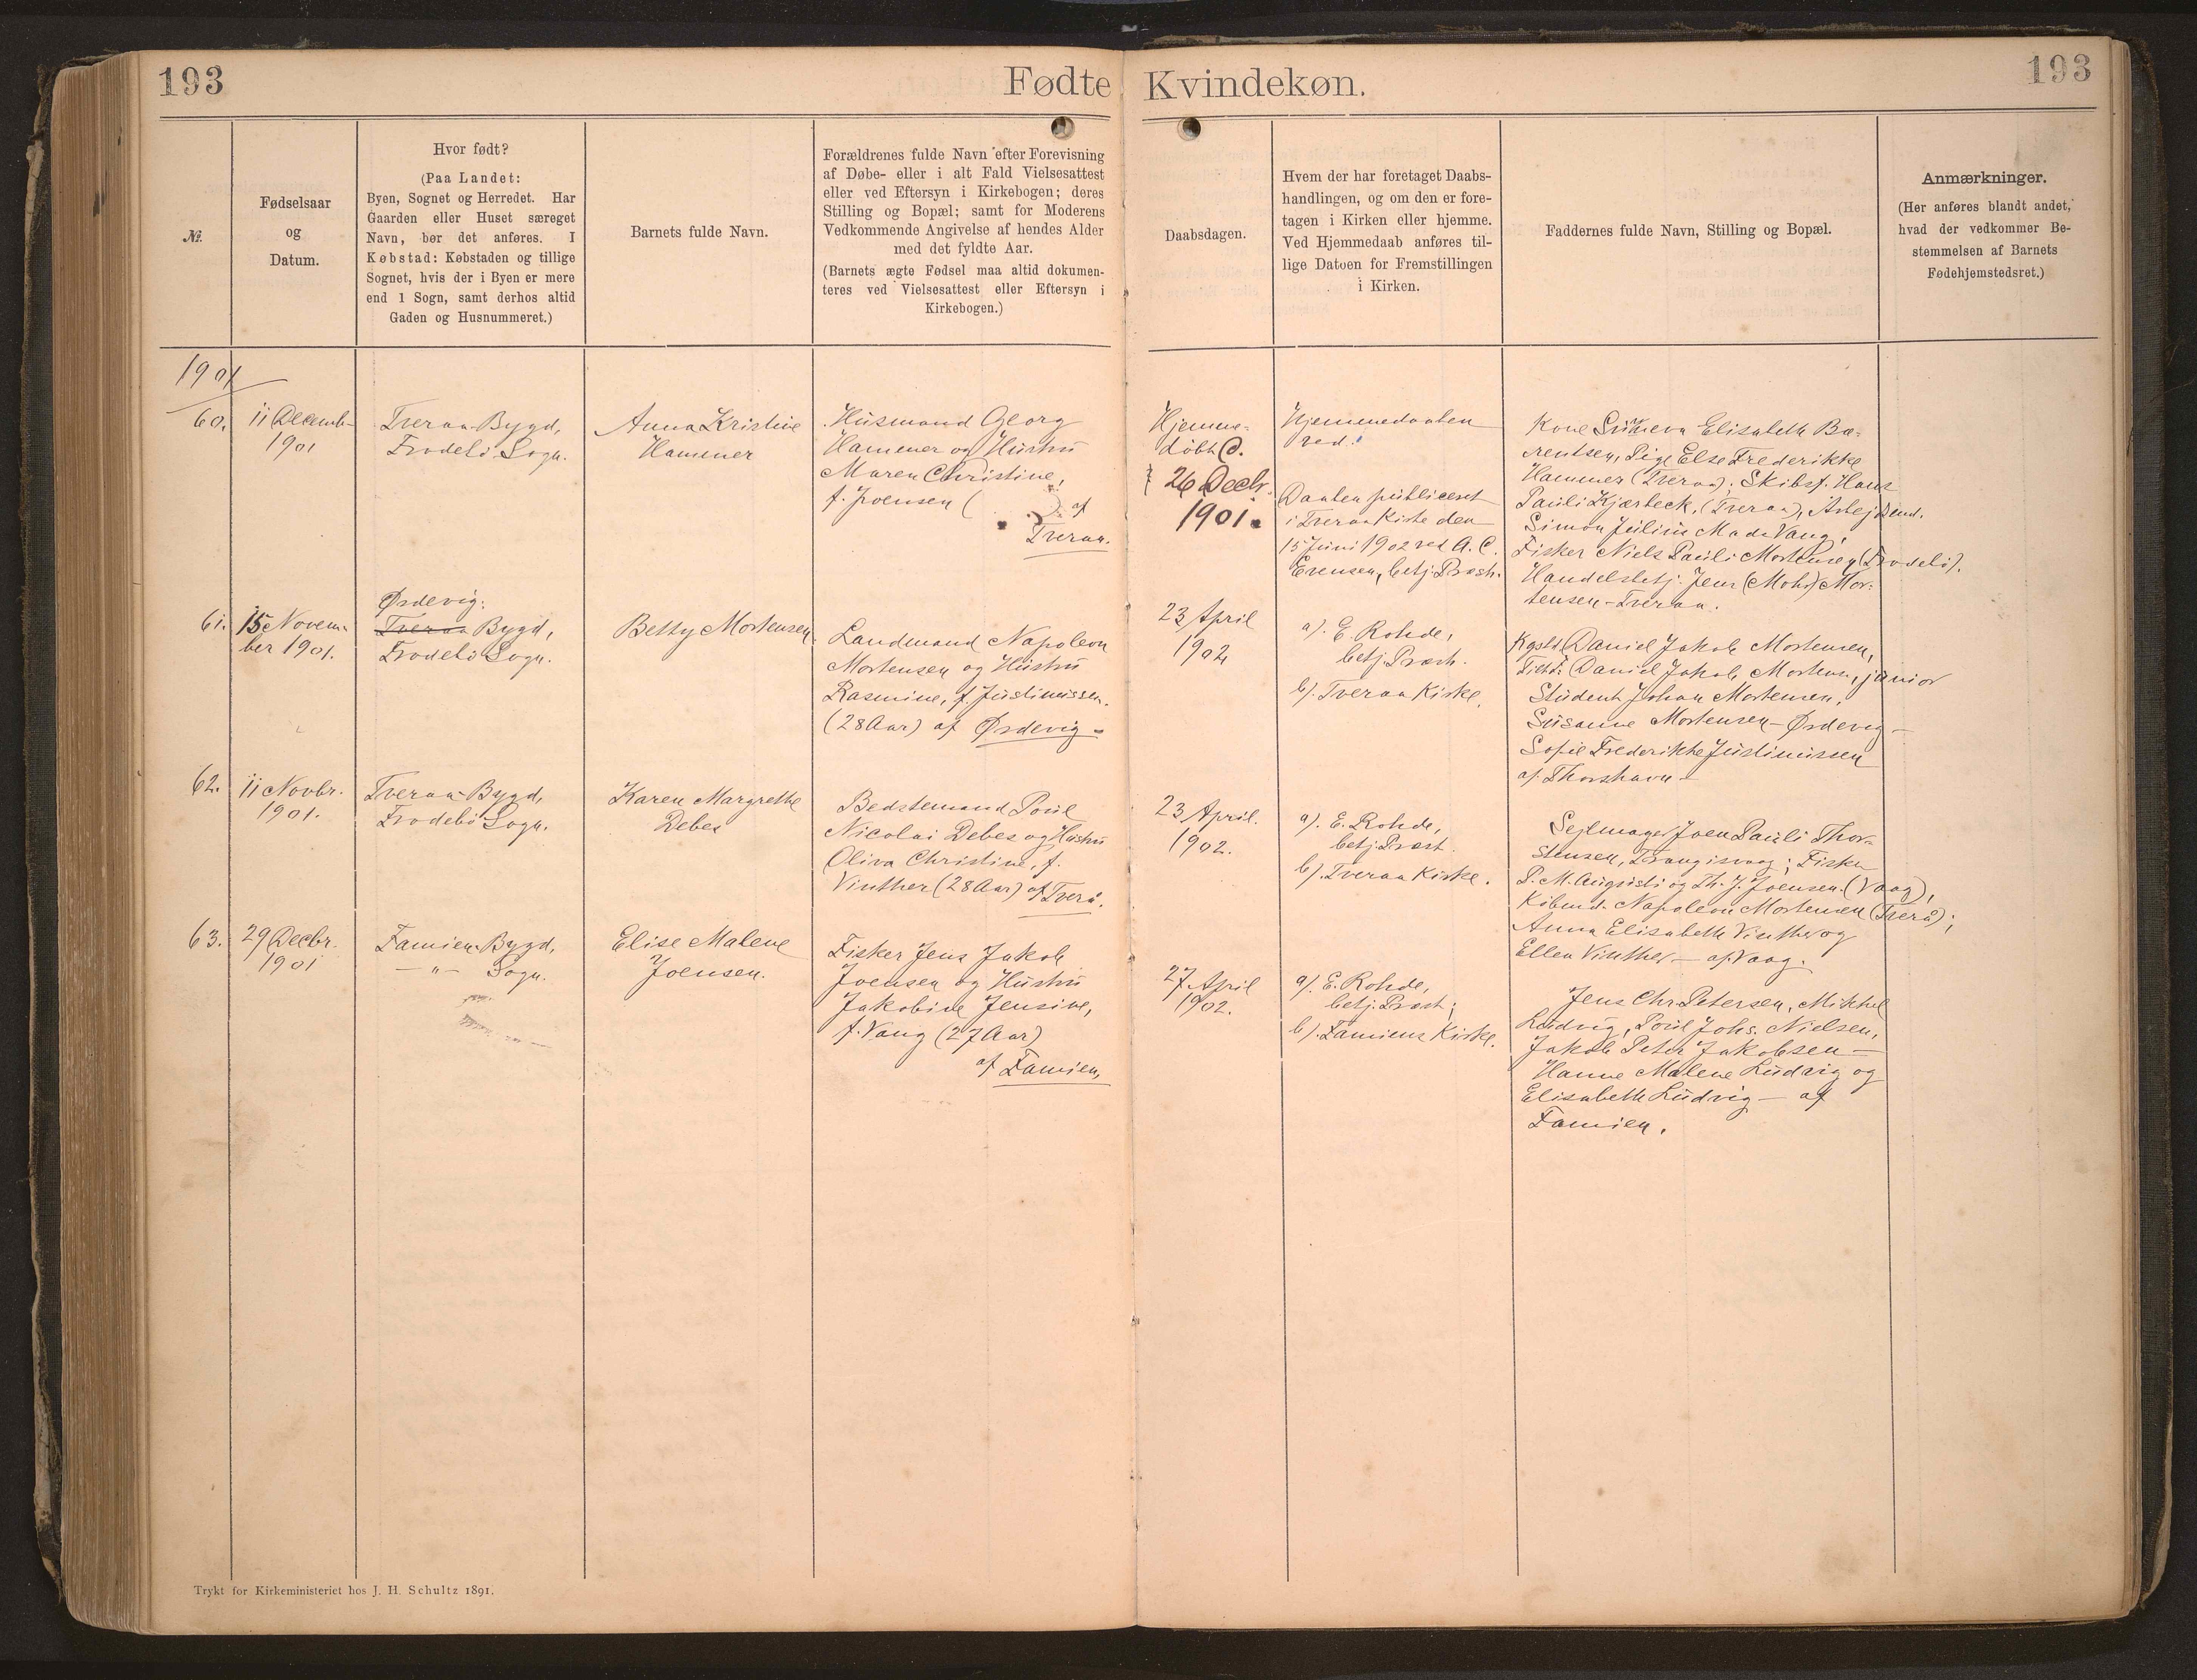 193
Fødte
Kvindekøn.
193
№.
Fødselsaar
og
Datum.
Hvor født?
(Paa Landet:
Byen, Sognet og Herredet. Har
Gaarden eller Huset særeget
Navn, bør det anføres. I
Købstad: Købstaden og tillige
Sognet, hvis der i Byen er mere
end 1 Sogn, samt derhos altid
Gaden og Husnummeret.)
Barnets fulde Navn.
Forældrenes fulde Navn efter Forevisning
af Døbe- eller i alt Fald Vielsesattest
eller ved Eftersyn i Kirkebogen; deres
Stilling og Bopæl; samt for Moderens
Vedkommende Angivelse af hendes Alder
med det fyldte Aar.
(Barnets ægte Fødsel maa altid dokumen-
teres ved Vielsesattest eller Eftersyn i
Kirkebogen.)
Daabsdagen.
Hvem der har foretaget Daabs-
handlingen, og om den er fore-
tagen i Kirken eller hjemme.
Ved Hjemmedaab anføres til-
lige Datoen for Fremstillingen
i Kirken.
Faddernes fulde Navn, Stilling og Bopæl.
Anmærkninger.
(Her anføres blandt andet,
hvad der vedkommer Be-
stemmelsen af Barnets
Fødehjemstedsret.)
1901
60.
11 Decemb-
1901
Tveraa-Bygd,
Frodebö Sogn.
Anna Kristine
Hammer
Husmand Georg
Hammer og Hustru
Maren Christine,
f. Joensen (
). af
Tveraa.
Hjemme-
döbt
26 Decbr.
1901.
Hjemmedaaben
ved
Daaben publiceret
i Tveraa Kirke den
15 Juni 1902 ved A. C.
Evensen, betj. Præst.
Kone Elisabeth Ba-
rentsen, Pige Else Frederikke
Hammer (Tveraa); Skibsf. Hans
Pauli Kjærbeck, (Tveraa), Arbejdsmd.
Simon Julius Mads Vang,
Fisker Niels Pauli Mortensen (Frodebö).
Handelsbetj. Jens (Mohr) Mor-
tensen - Tveraa.
61.
15 Novem-
ber 1901.
Ördevig:
Tveraa Bygd,
Frodebö Sogn.
Betty Mortensen.
Landmand Napoleon
Mortensen og Hustru
Rasmine, f. Justinussen.
(28 Aar) af Ördevig -
23 April
1902
a). E. Rohde,
betj. Præst.
b). Tveraa Kirke.
Daniel Jakob Mortensen,
Daniel Jakob Mortensen, junior
Student Johan Mortensen,
Susanne Mortensen - Ördevig -
Sofie Frederikke Justinussen
af Thorshavn -
62.
11 Novbr.
1901.
Tveraa-Bygd,
Frodebö Sogn.
Karen Margrethe
Debes
Bedstemand Poul
Nicolai Debes og Hustru
Oliva Christine, f.
Vinther (28 Aar) af Tverå.
23 April.
1902.
a). E. Rohde,
betj. Præst.
b). Tveraa Kirke.
Sejlmager Joen Pauli Thor-
stensen, Trangisvaag; Fisker
P. M. Augusti og Th. J. Joensen (Vaag),
Köbmd. Napoleon Mortensen (Tverå);
Anna Elisabeth Vinther og
Ellen Vinther - af Vaag.
63.
29 Decbr.
1901
Famien-Bygd,
- " - Sogn.
Elise Malene
Joensen.
Fisker Jens Jakob
Joensen og Hustru
Jakobine Jensine,
f. Vang (27 Aar)
af Famien,
27 April
1902.
a). E. Rohde,
betj. Præst;
b). Famiens Kirke.
Jens Chr. Petersen, Mikkel
Ludvig, Poul Johs. Nielsen,
Jakob Peter Jakobsen -
Hanne Malene Ludvig og
Elisabeth Ludvig - af
Famien.
Trykt for Kirkeministeriet hos J. H. Schultz 1891.